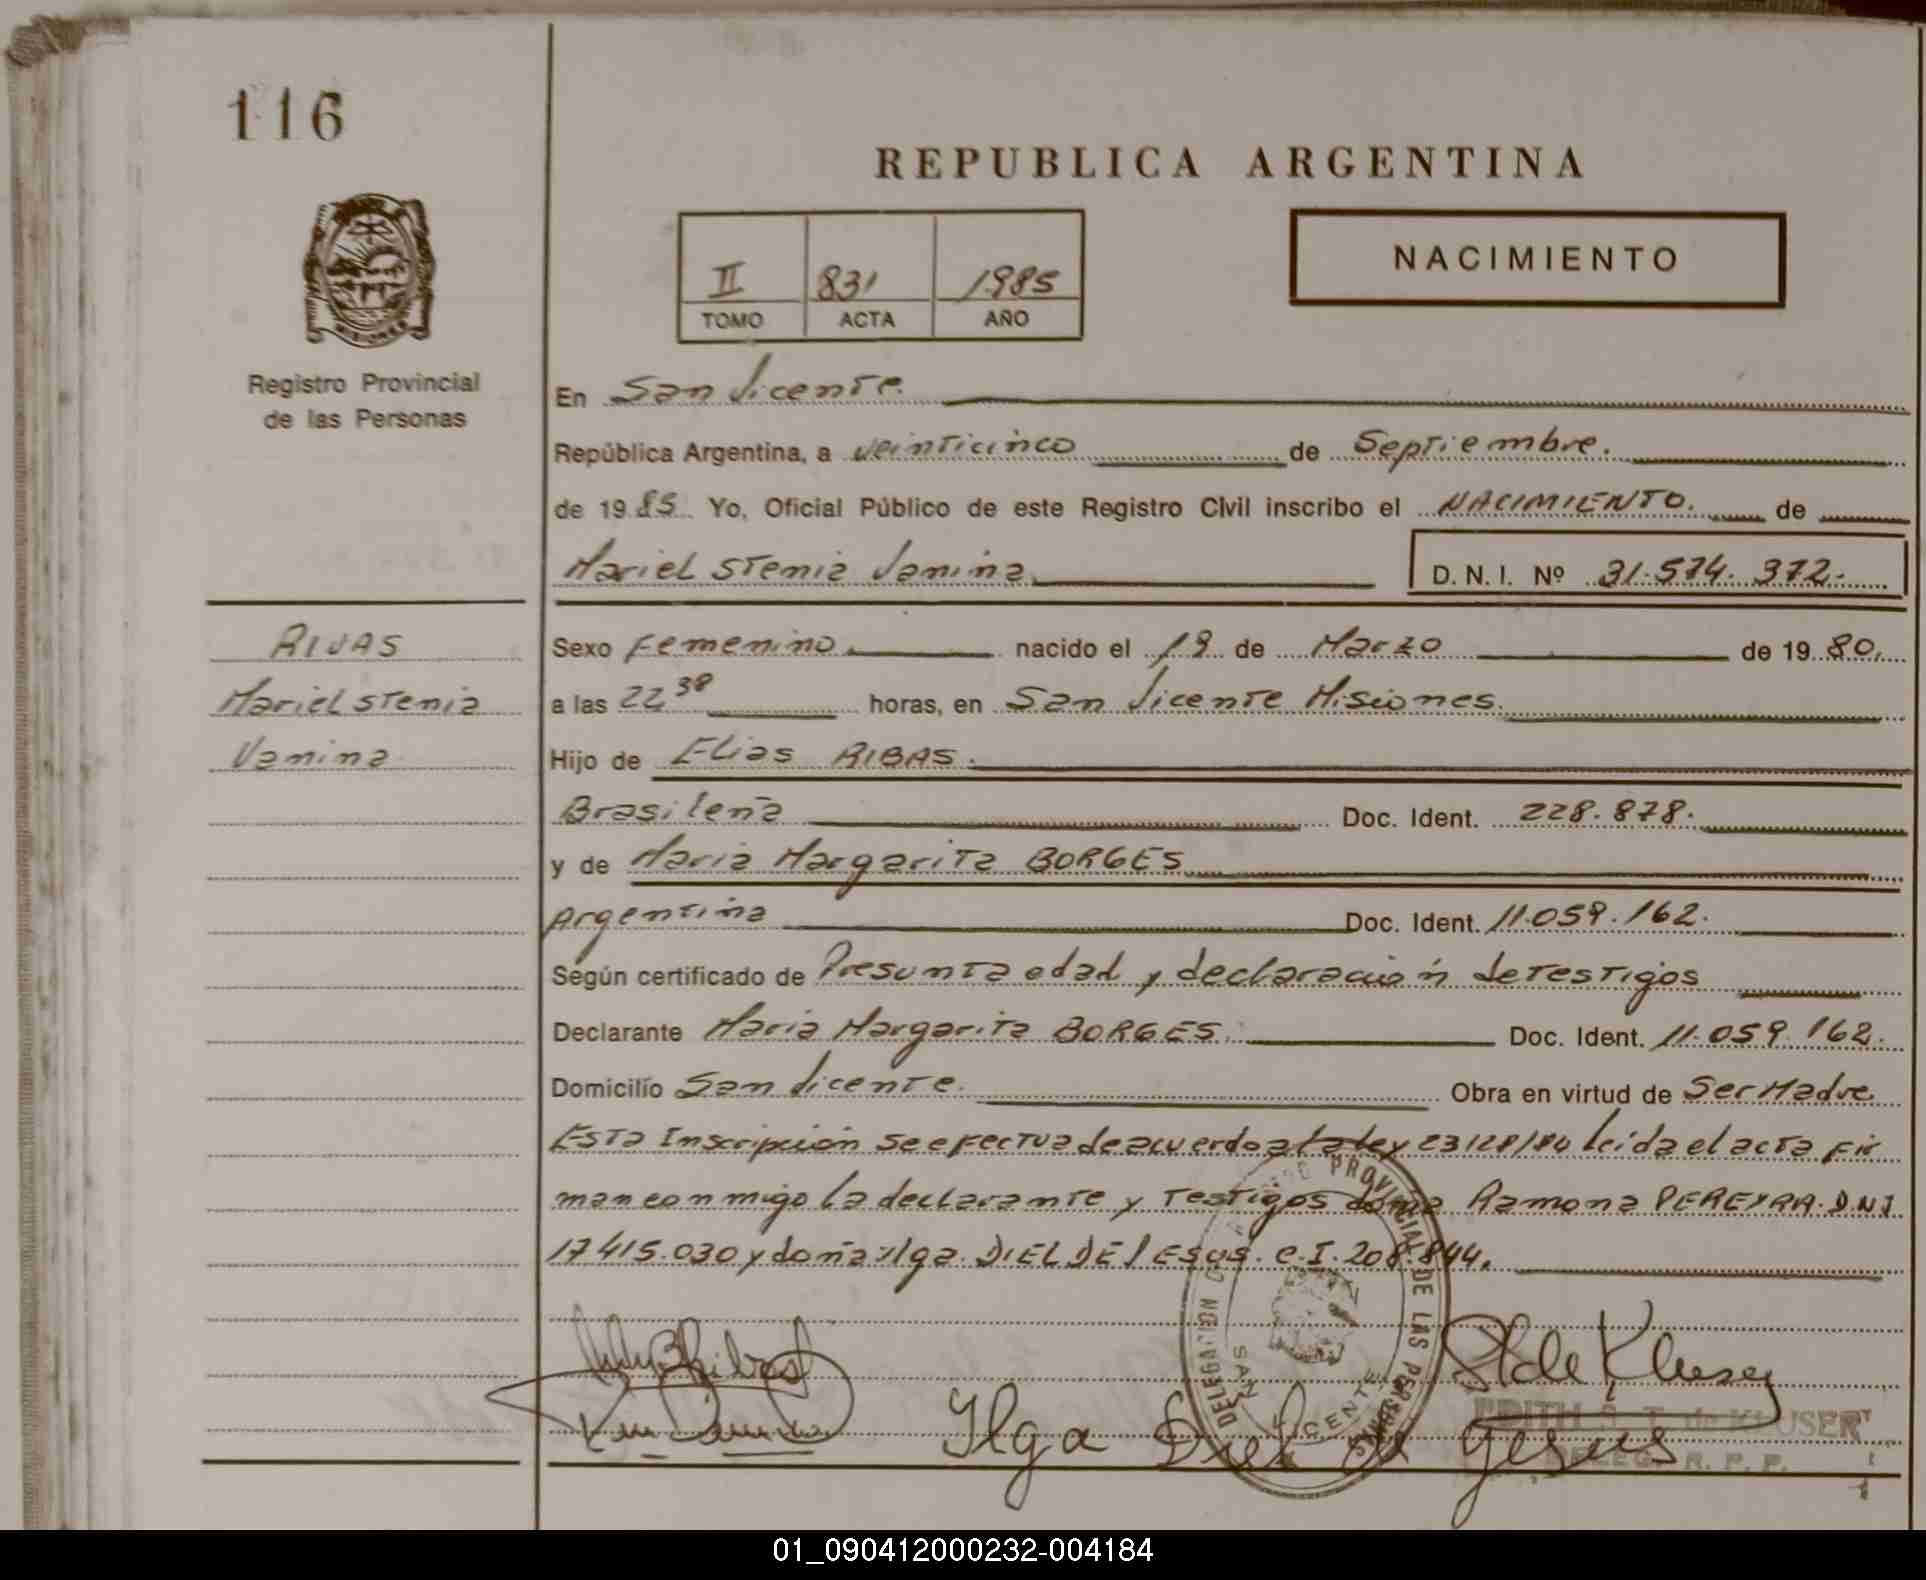 116
REPUBLICA ARGENTINA
NACIMIENTO
II 831 1985
TOMO ACTA AÑO
MISIONES
Registro Provincial
de las Personas
En San Vicente.
República Argentina, a veinticinco de Septiembre.
de 1985 Yo, Oficial Público de este Registro Civil inscribo el NACIMIENTO. de
Mariel Stenia Vanina D.N.I. Nº 31.574.372.
RIVAS
Mariel Stenia
Vanina
Sexo Femenino nacido el 19 de Marzo de 1980.
a las 22 38 horas, en San Vicente Misiones.
Hijo de Elias RIBAS.
Brasileña Doc. Ident. 228.878.
y de Maria Margarita BORGES
Argentina Doc. Ident. 11.059.162.
Según certificado de Presunta edad y declaración de testigos
Declarante Maria Margarita BORGES. Doc. Ident. 11.059.162.
Domicilio San Vicente. Obra en virtud de Ser Madre
Esta Inscripción se efectua de acuerdo a la ley 23128/84 leida el acta fir
man conmigo la declarante y testigos doña Ramona PEREYRA. D.N.I
17415.030 y doña Ilga. DIEL DE JESUS. C.I. 208.844.
DELEGACION PROVINCIAL DE LAS PERSONAS
SAN VICENTE
Ribas
S T de Kluser
EDITH S. T. de KLUSER
DELEG. R. P. P.
Ilga Diel de Jesus
01_090412000232-004184